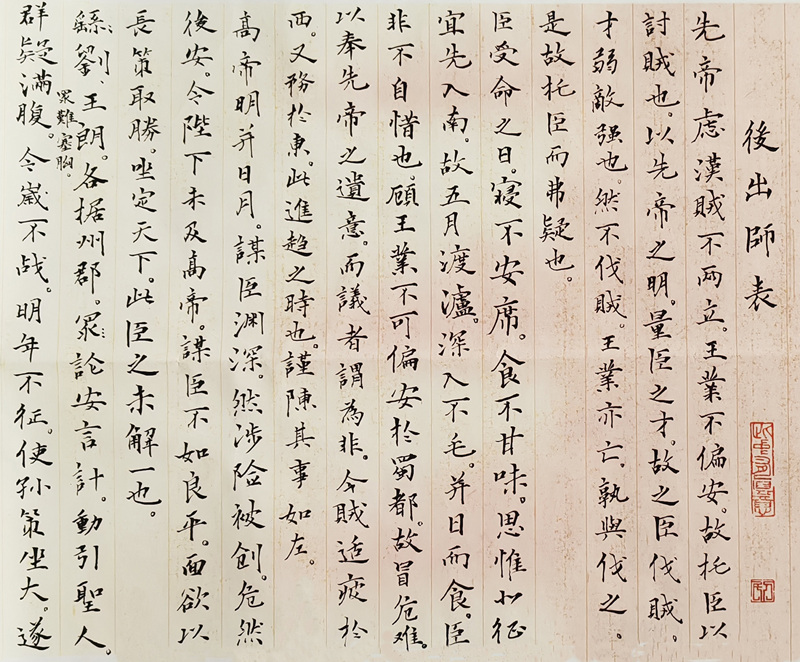 後出師表
先帝慮漢賊不兩立。王業不偏安。故托臣以
討賊也。以先帝之明。量臣之才。故之臣伐賊。
才弱敵强也。然不伐賊。王業亦亡。孰與伐之。
是故托臣而弗疑也。
臣受命之日。寝不安席。食不甘味。思惟北征
宜先入南。故五月渡瀘。深入不毛。并日而食。臣
非不自惜也。顧王業不可偏安於蜀都。故冒危难。
以奉先帝之遺意。而議者謂為非。今賊适疲於
西。又務於東。此進趋之時也。謹陳其事如左。
高帝明并日月。謀臣渊深。然涉险被創。危然
後安。今陛下未及高帝。謀臣不如良平。而欲以
長策取勝。坐定天下。此臣之未解一也。
繇劉、王朗。各据州郡。眾論安言計。動引聖人。
眾難塞胸。
群疑滿腹。今歲不战。明年不征。使孙策坐大。遂